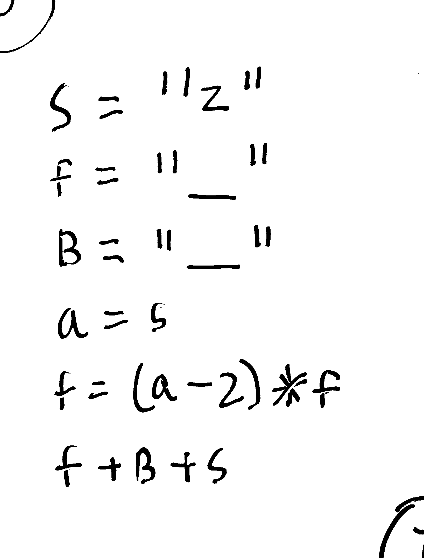 S = "z"
f = "_"
B = "_"
a = 5
f = (a-2)*f
f+B+S